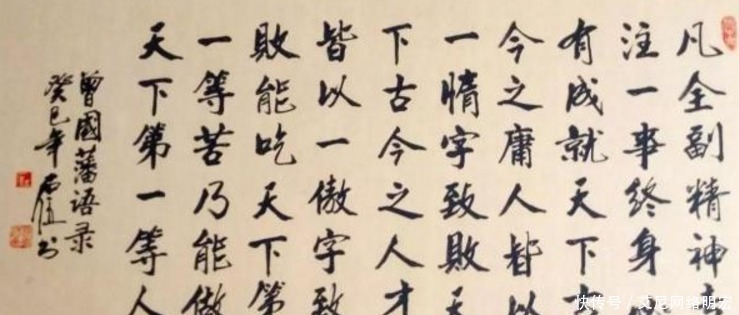 凡全副精神
注一事终身
有成就天下
今之庸人皆以
一惰字致败天
下古今之人才
皆以一傲字致
败能吃天下第
一等苦乃能做
天下第一等人
曾國藩语录
癸巳年
快传号/艾尼网络明宏